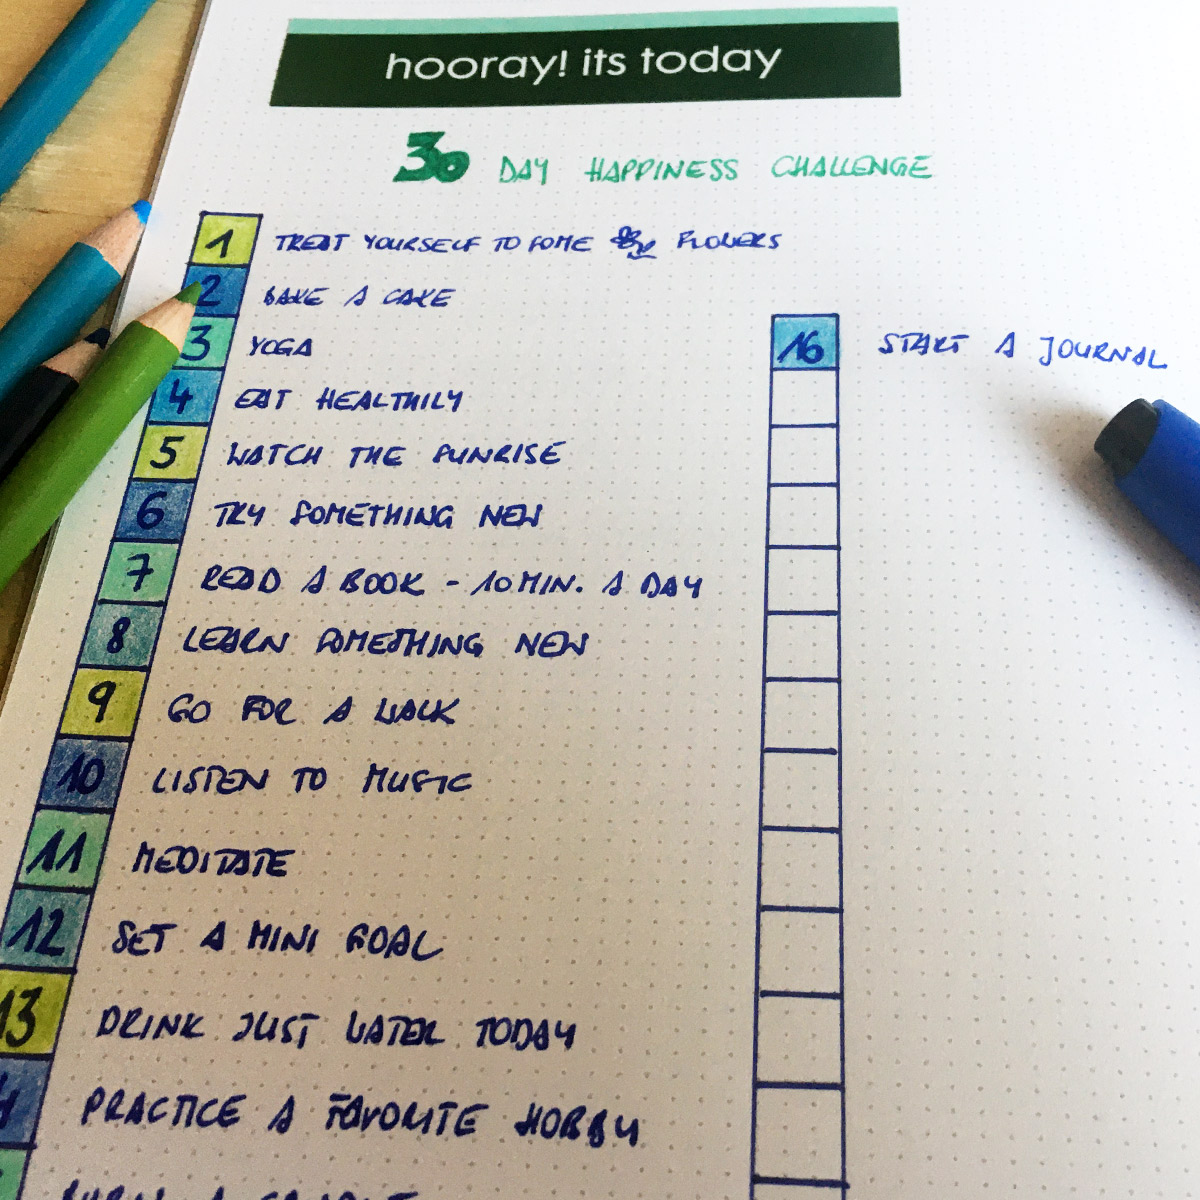 hooray! its today
30 DAY HAPPINESS CHALLENGE
1 TREAT YOURSELF TO SOME FLOWERS
2 BAKE A CAKE
3 YOGA
4 EAT HEALTHILY
5 WATCH THE SUNRISE
6 TRY SOMETHING NEW
7 READ A BOOK - 10 MIN. A DAY
8 LEARN SOMETHING NEW
9 GO FOR A WALK
10 LISTEN TO MUSIC
11 MEDITATE
12 SET A MINI GOAL
13 DRINK JUST WATER TODAY
PRACTICE A FAVORITE HOBBY
A
16 START A JOURNAL